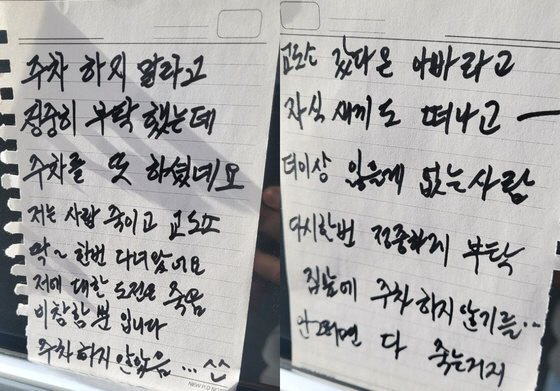 주차 하지 말라고
정중히 부탁 했는데
주차를 못 하셨네요
저는 사람 죽이고 교도소
딱~ 한번 다녀왔어요
저에 대한 도전은 죽음
비참할 뿐 입니다
주차 하지 않았음...
교도소 갔다온 아빠라고
자식 새끼도 떠나고ㅡ
더이상 잃을게 없는 사람
다시한번 정중하게 부탁
집앞에 주차 하지 않기를..
안그러면 다 죽는거지